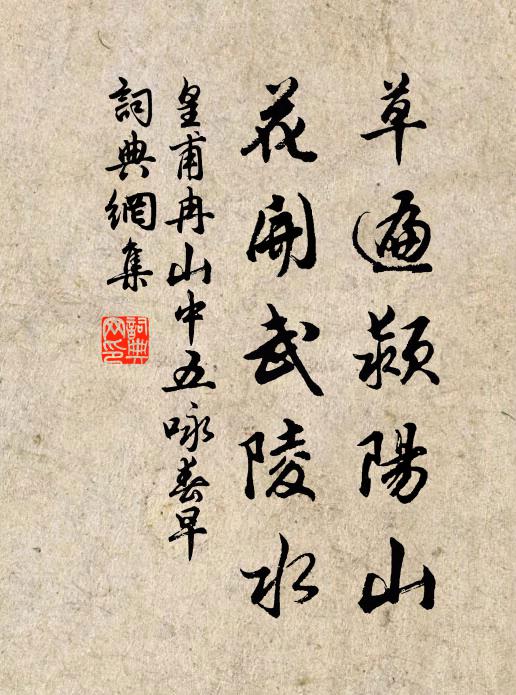 草遍潁陽山
花開武陵水
皇甫冉山中五咏春早
詞典網集
詞典网印